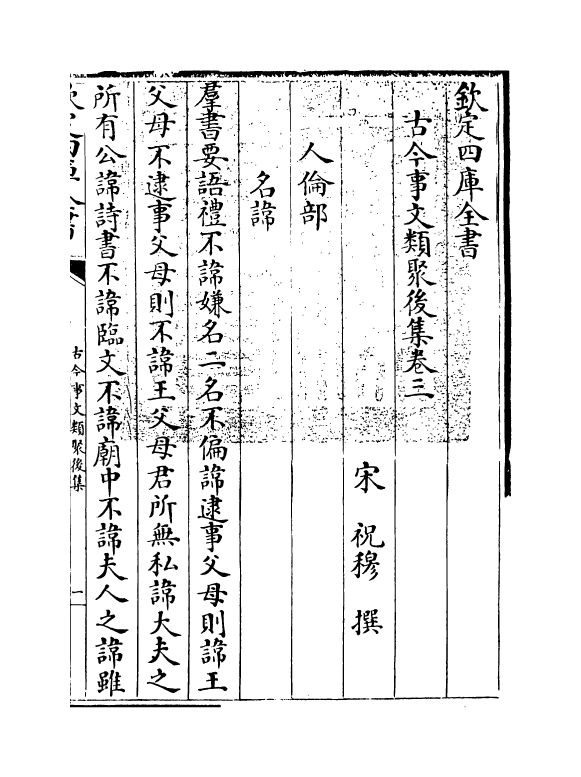 欽定四庫全書
古今事文類聚後集卷三
宋 祝穆 撰
人倫部
名諱
羣書要語禮不諱嫌名二名不偏諱逮事父母則諱王
父母不逮事父母則不諱王父母君所無私諱大夫之
所有公諱詩書不諱臨文不諱廟中不諱夫人之諱雖
古今事文類聚後集
一